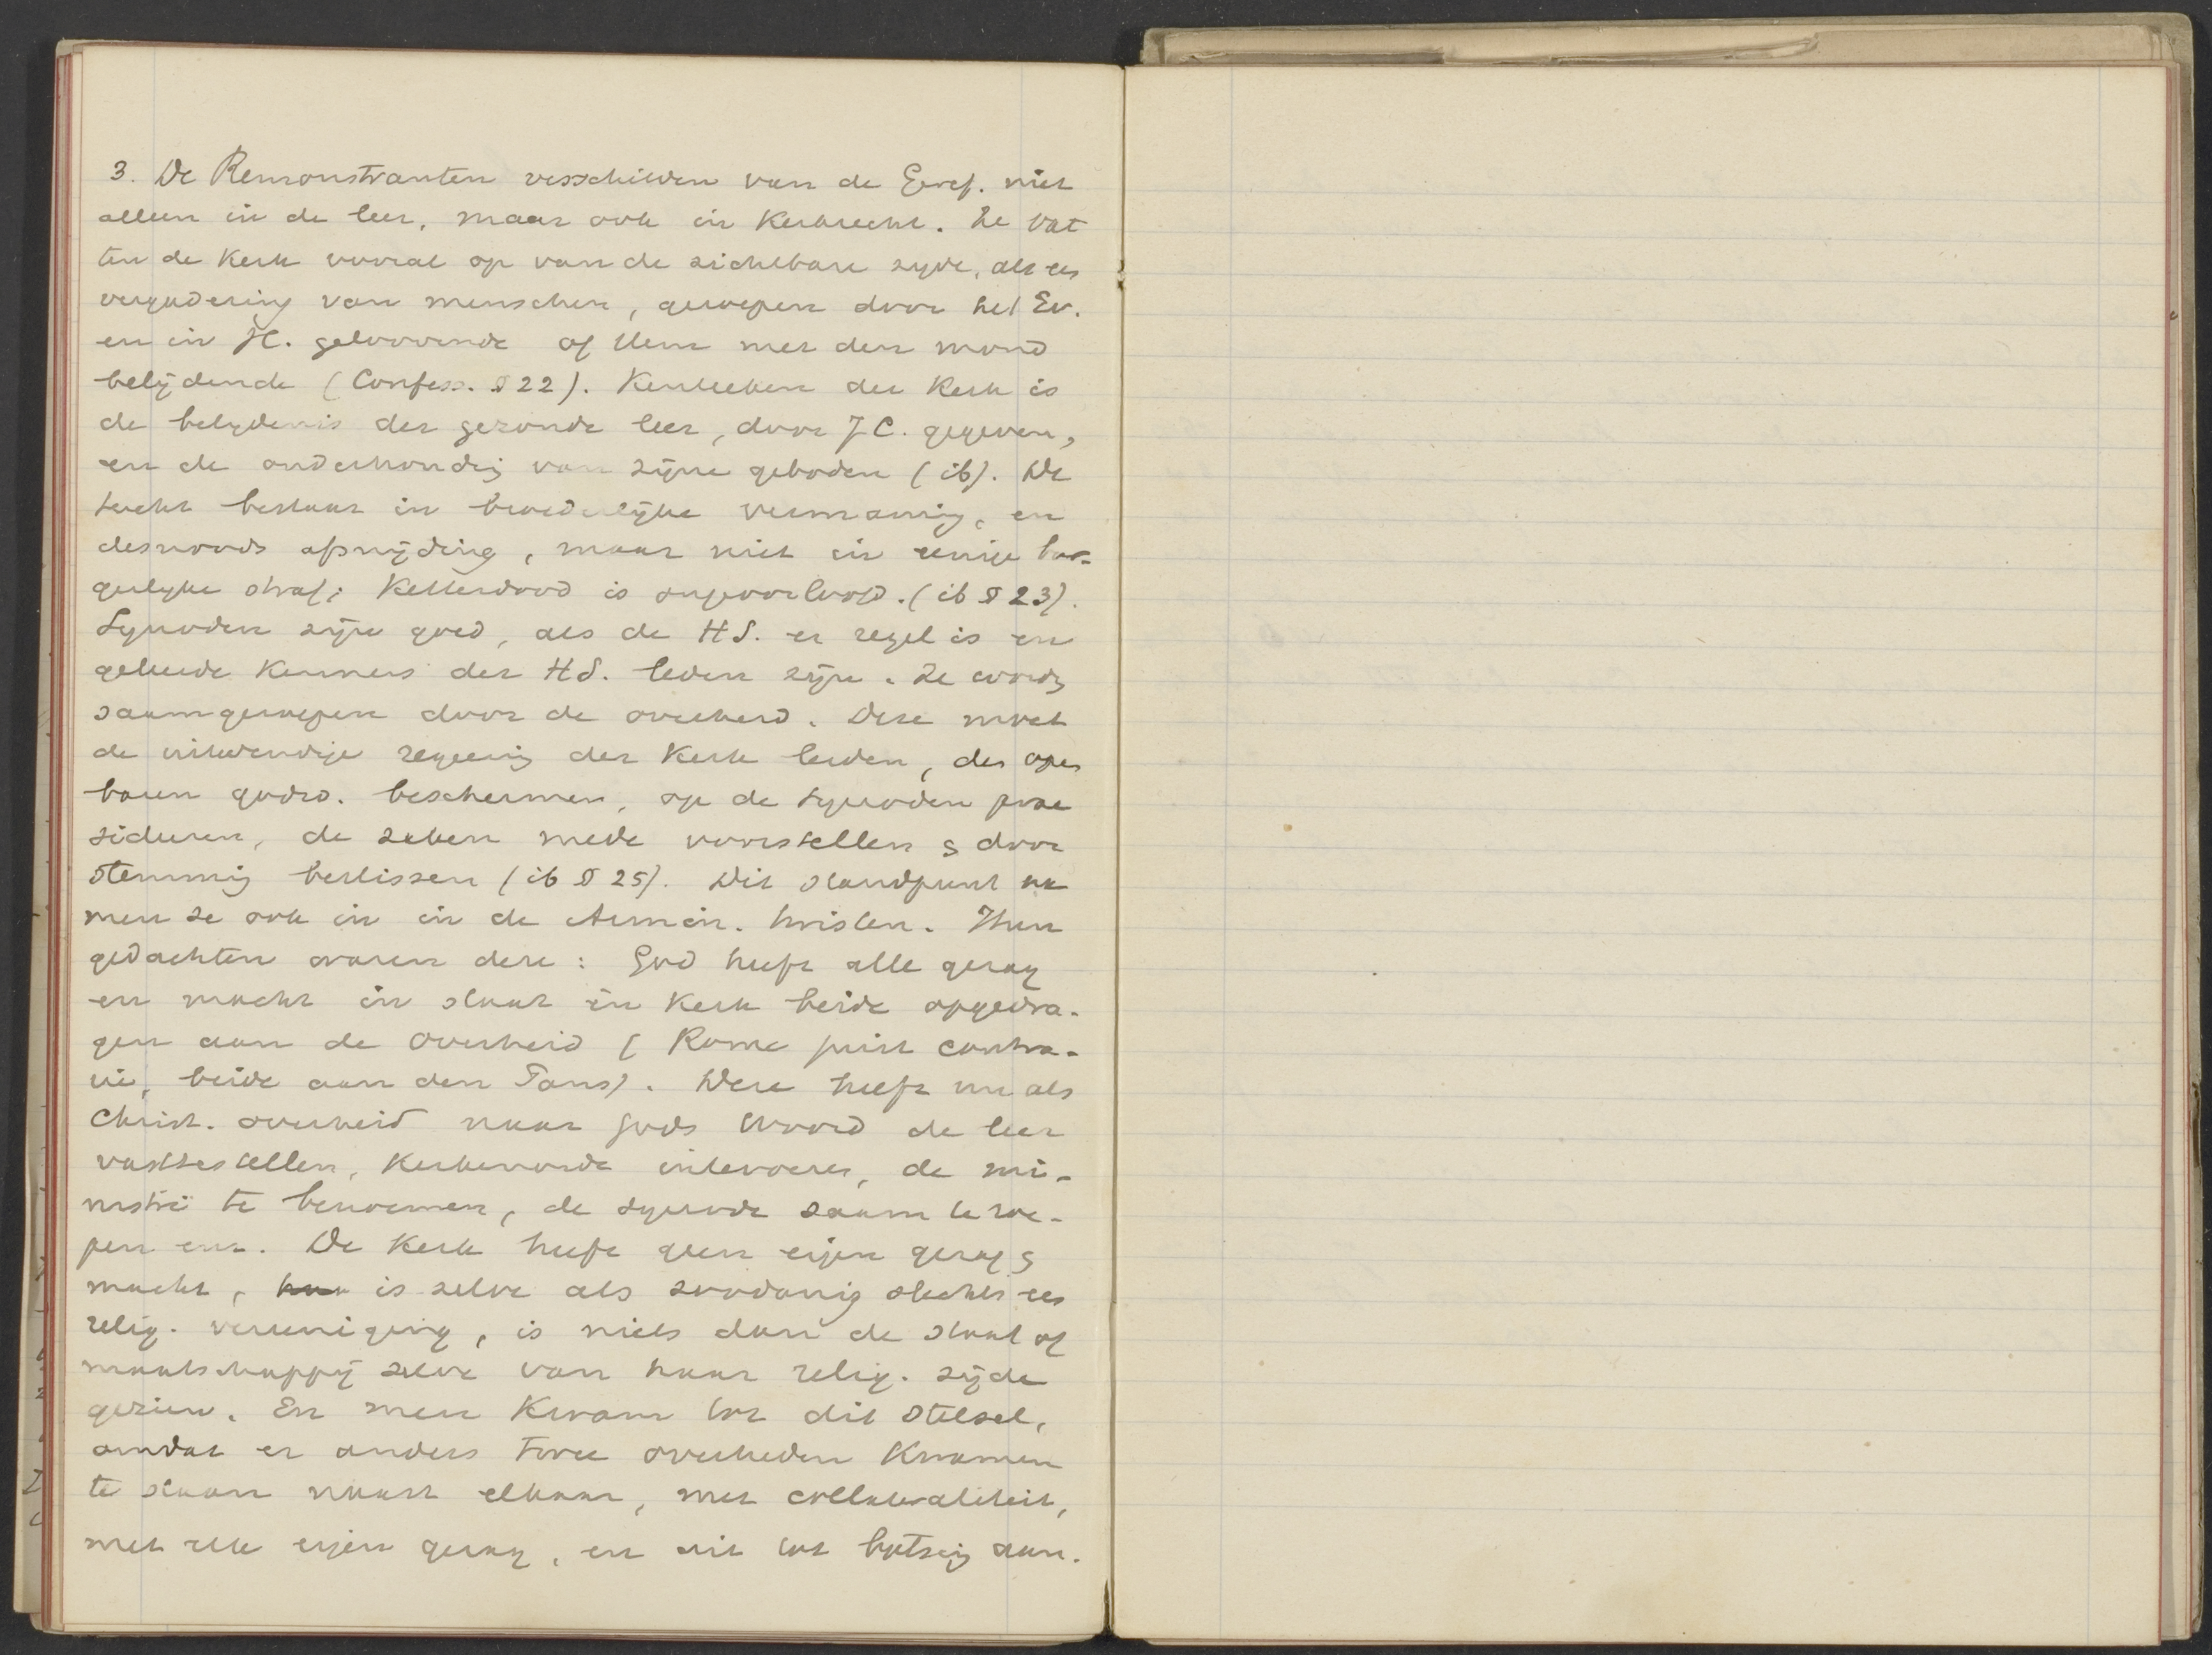 3. De Remonstranten verschilden van de Geref. niet
alleen in de leer, maar ook in Kerkrecht. Ze vat
ten de Kerk vooral op van de zichtbare zyde, als een
vergadering van menschen, geroepen door het Ev.
en in JC. geloovende of Hem met den mond
belijdende (Confess. § 22). Kenteeken der Kerk is
de belydenis der gezonde leer, door J.C. gegeven,
en de onderhoudg van zijne geboden (ib). De
tucht bestaat in broederlijke vermaning, en
desnoods afsnijding, maar niet in eenige bur-
gerlyke straf; Ketterdood is ongeoorloofd. (ib § 23).
Synoden zijn goed, als de HS. er regel is en
geleerde Kenners der HS. leden zijn. Ze wordn
saamgeroepen door de overheid. Deze moet
de uitwendige regeering der Kerk leiden, den open
baren godsd. beschermen, op de Synoden prae
sideeren, de zaken mede voorstellen & door
stemming beslissen (ib § 25). Dit standpunt na
men ze ook in in de Armin. twisten. Hun
gedachten waren deze: God heeft alle gezag
en macht in staat en Kerk beide opgedra-
gen aan de Overheid (Rome juist contra-
rie, beide aan den Paus). Deze heeft nu als
Christ. overheid naar Gods Woord de leer
vasttestellen, Kerkenorde intevoeren, de mi-
nistri te benoemen, de synode saam te roe-
pen enz. De Kerk heeft geen eigen gezag &
macht, is zelve als zoodanig slechts een
relig. vereeniging, is niets dan de staat of
maatschappij zelve van haar relig. zijde
gezien. En men Kwam tot dit stelsel,
omdat er anders twee overheden Kwamen
te staan naast elkaar, met collateraliteit,
met elk eigen gezag, en dit tot botsing aan.